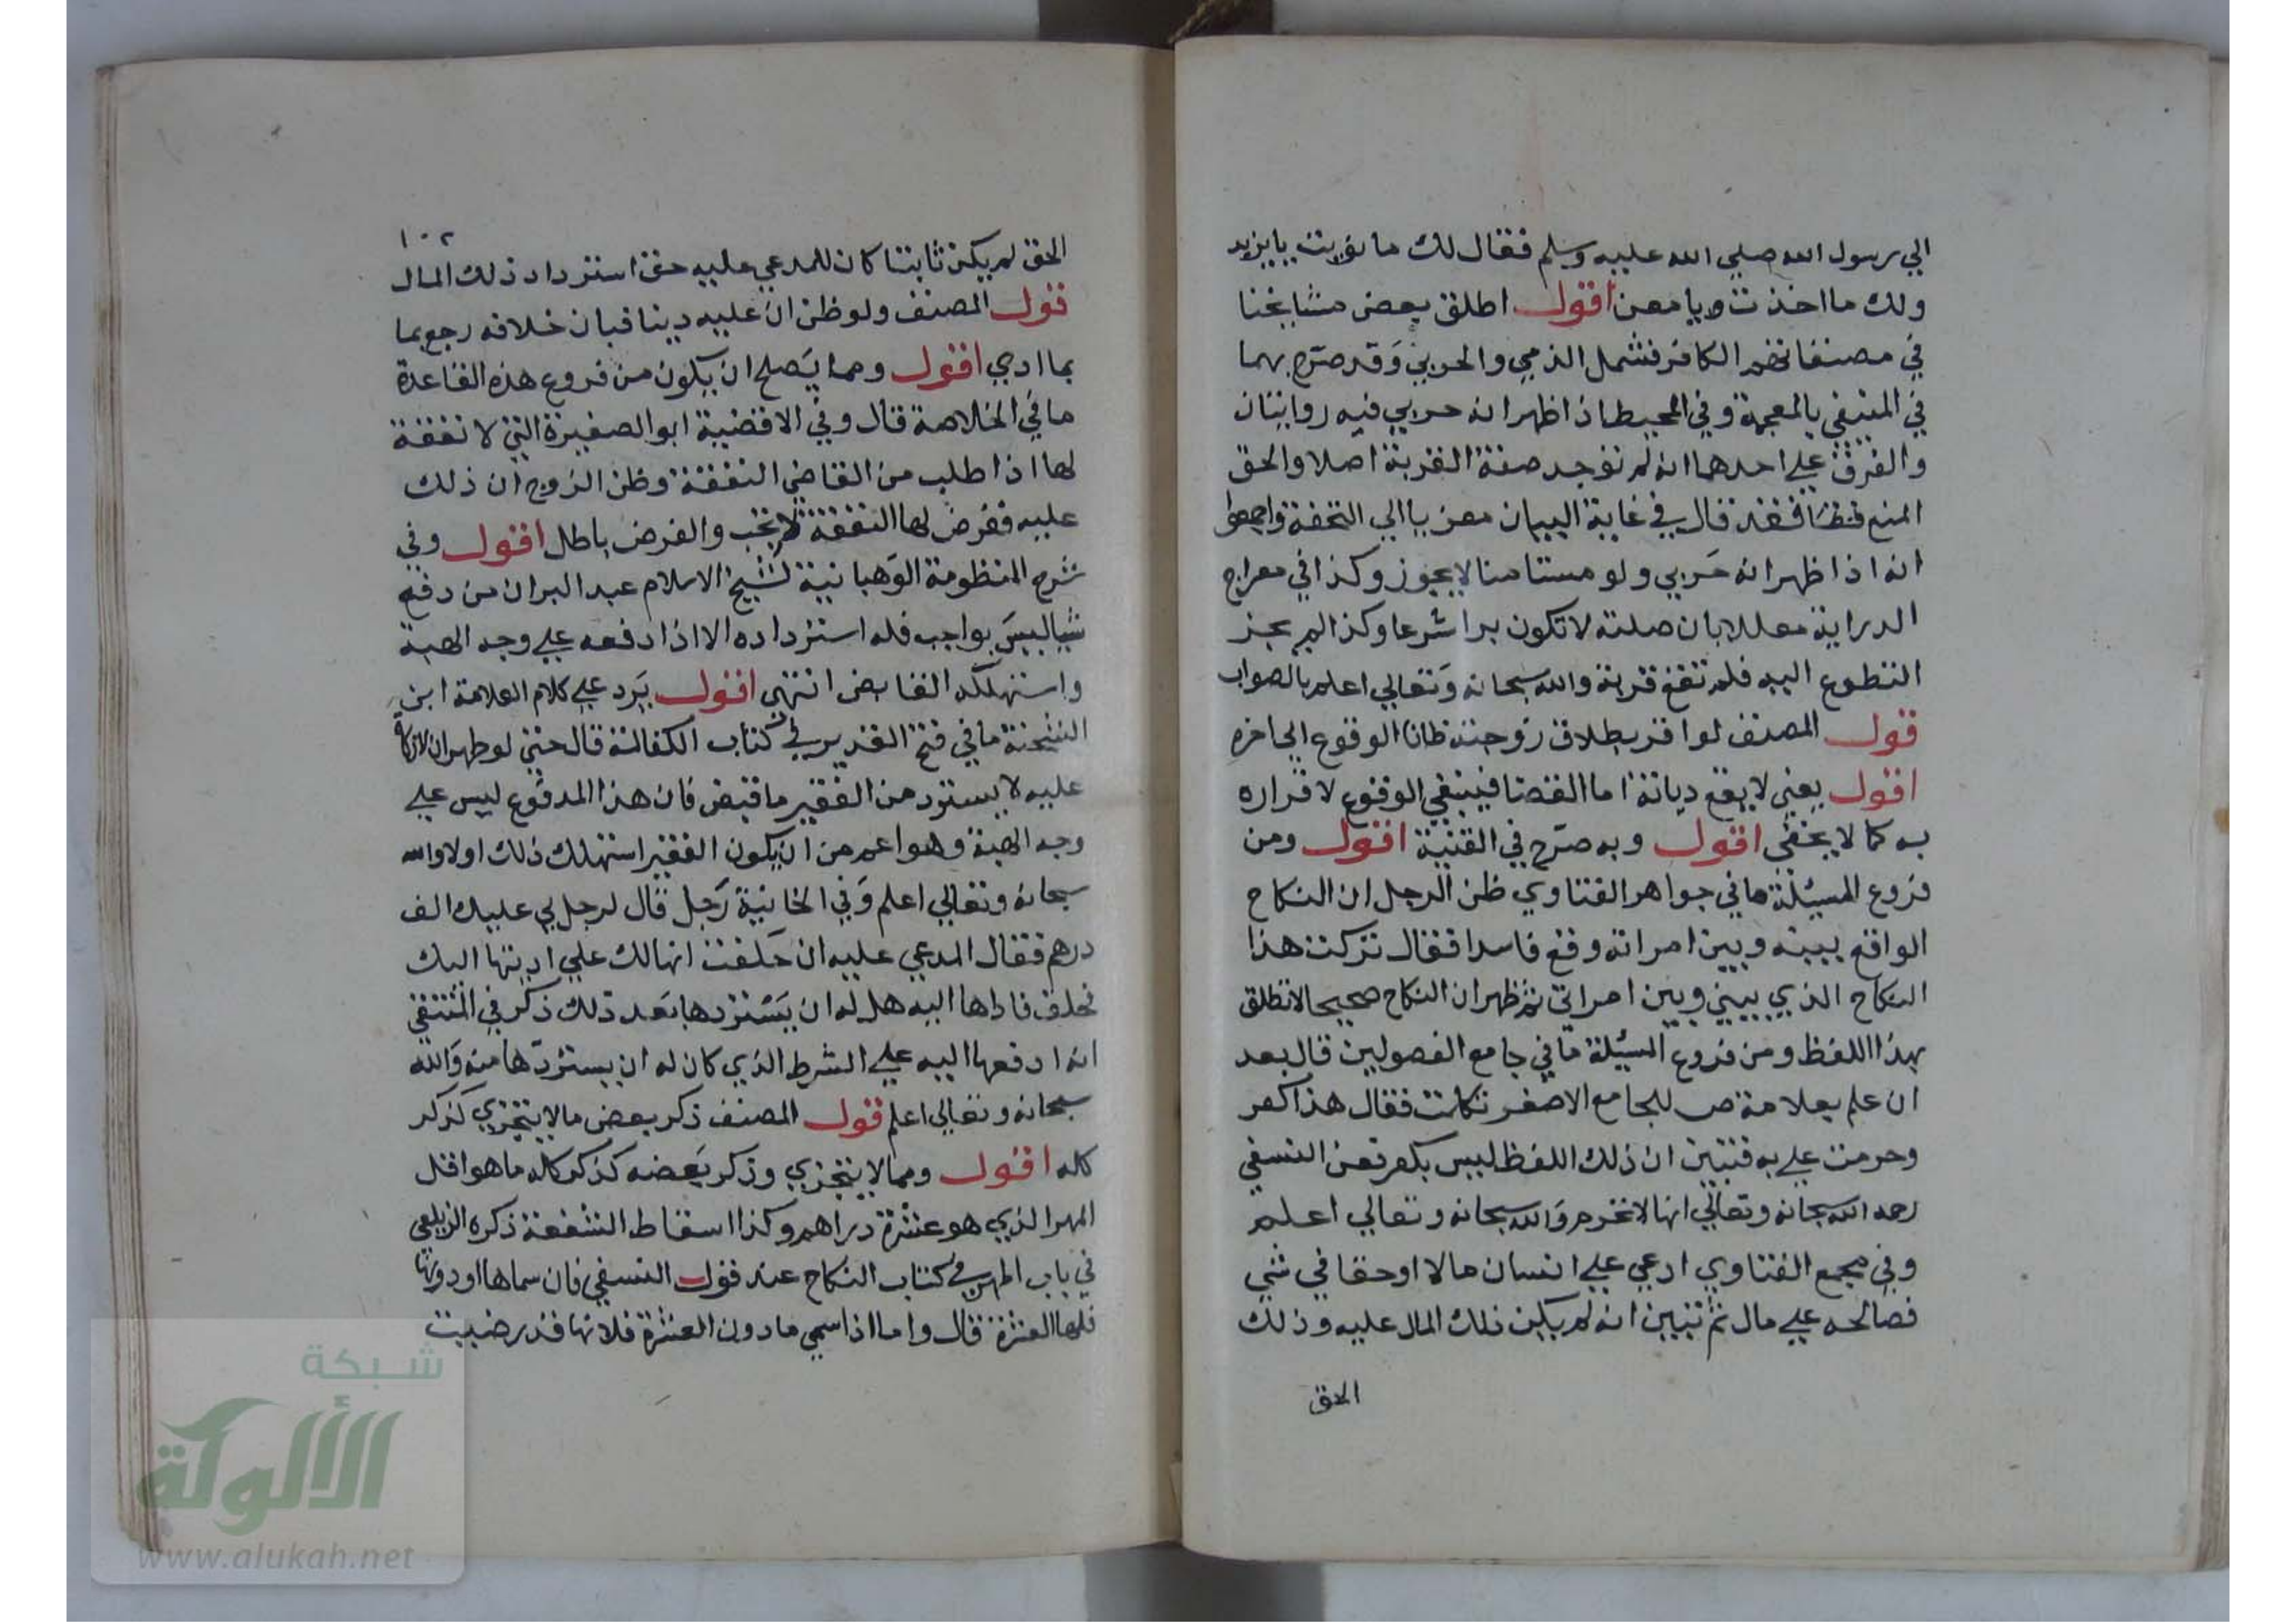 الي رسول الله صلي الله عليه وسلم فقال لك ما نويت يا يزيد
ولك ما اخذت ويا معن اقول اطلق بعض مشايخنا
في مصنفاتهم الكافر فشمل الذمي والحربي وقد صرح بهما
في المنبغي بالمعجمة وفي المحيط اذا ظهر انه حربي فيه روايتان
والفرق علي احدهما انه لم توجد صفة القربة اصلا والحق
المنع فقد قال في غاية البيان معزيا الي التحفة واجمعوا
انه اذا ظهر انه حربي ولو مستامنا لا يجوز وكذا في معراج
الدراية معللا بان صلته لا تكون برا شرعا وكذا لم يجز
التطوع اليه فلم تقع قربة والله سبحانه وتعالي اعلم بالصواب
قول المصنف لو اقر بطلاق زوجته ظانا الوقوع الي اخره
اقول يعني لا يقع ديانة اما القضا فينبغي الوقوع لاقراره
به كما لا يخفي اقول وبه صرح في القنية اقول ومن
فروع المسئلة ما في جواهر الفتاوي ظن الرجل ان النكاح
الواقع بينه وبين امراته وقع فاسدا فقال تركت هذا
النكاح الذي بيني وبين امراتي ثم ظهر ان النكاح صحيحا لا تطلق
بهذا اللفظ ومن فروع المسئلة ما في جامع الفصولين قال بعد
ان علم بعلامة ص للجامع الاصغر تكلمت فقال هذا كفر
وحرمت علي به فتبين ان ذلك اللفظ ليس بكفر فعن النسفي
رحمه الله سبحانه وتعالي انها لا تحرم والله سبحانه وتعالي اعلم
وفي مجمع الفتاوي ادعي علي انسان مالا او حقا في شي
فصالحه علي مال ثم تبين انه لم يكن ذلك المال عليه وذلك
الحق
١٠٢
الحق لم يكن ثابتا كان للمدعي عليه حق استرداد ذلك المال
قول المصنف ولو ظن ان عليه دينا فبان خلافه رجع بما
بما ادي اقول ومما يصلح ان يكون من فروع هذه القاعدة
ما في الخلاصة قال وفي الاقضية ابو الصغيرة التي لا نفقة
لها اذا طلب من القاضي النفقة وظن الزوج ان ذلك
عليه ففرض لها النفقة لا تجب والفرض باطل اقول وفي
شرح المنظومة الوهبانية لشيخ الاسلام عبد البر ان من دفع
شيا ليس بواجب فله استرداده الا اذا دفعه علي وجه الهبة
واستهلكه القابض انتهي اقول يرد علي كلام العلامة ابن
الشحنة ما في فتح القدير في كتاب الكفالة قال حتي لو ظهر ان لا زكاة
عليه لا يسترد من الفقير ما قبض فان هذا المدفوع ليس علي
وجه الهبة وهو اعم من ان يكون الفقير استهلك ذلك اولا والله
سبحانه وتعالي اعلم وفي الخانية رجل قال لرجل لي عليك الف
درهم فقال المدعي عليه ان حلفت انها لك علي اديتها اليك
فحلف فاداها اليه هل له ان يستردها بعد ذلك ذكر في المنتقي
انه ادفعها اليه علي الشرط الذي كان له ان يستردها منه والله
سبحانه وتعالي اعلم قول المصنف ذكر بعض مالا يتجزي كذكر
كله اقول ومما لا يتجزي وذكر بعضه كذكر كله ما هو اقل
المهر الذي هو عشرة دراهم وكذا اسقاط الشفعة ذكره الزيلعي
في باب المهر في كتاب النكاح عند قول النسفي فان سماها او دونها
فلها العشرة قال واما اذا سمي ما دون العشرة فلانها قد رضيت
شبكة
الألوكة
www.alukah.net